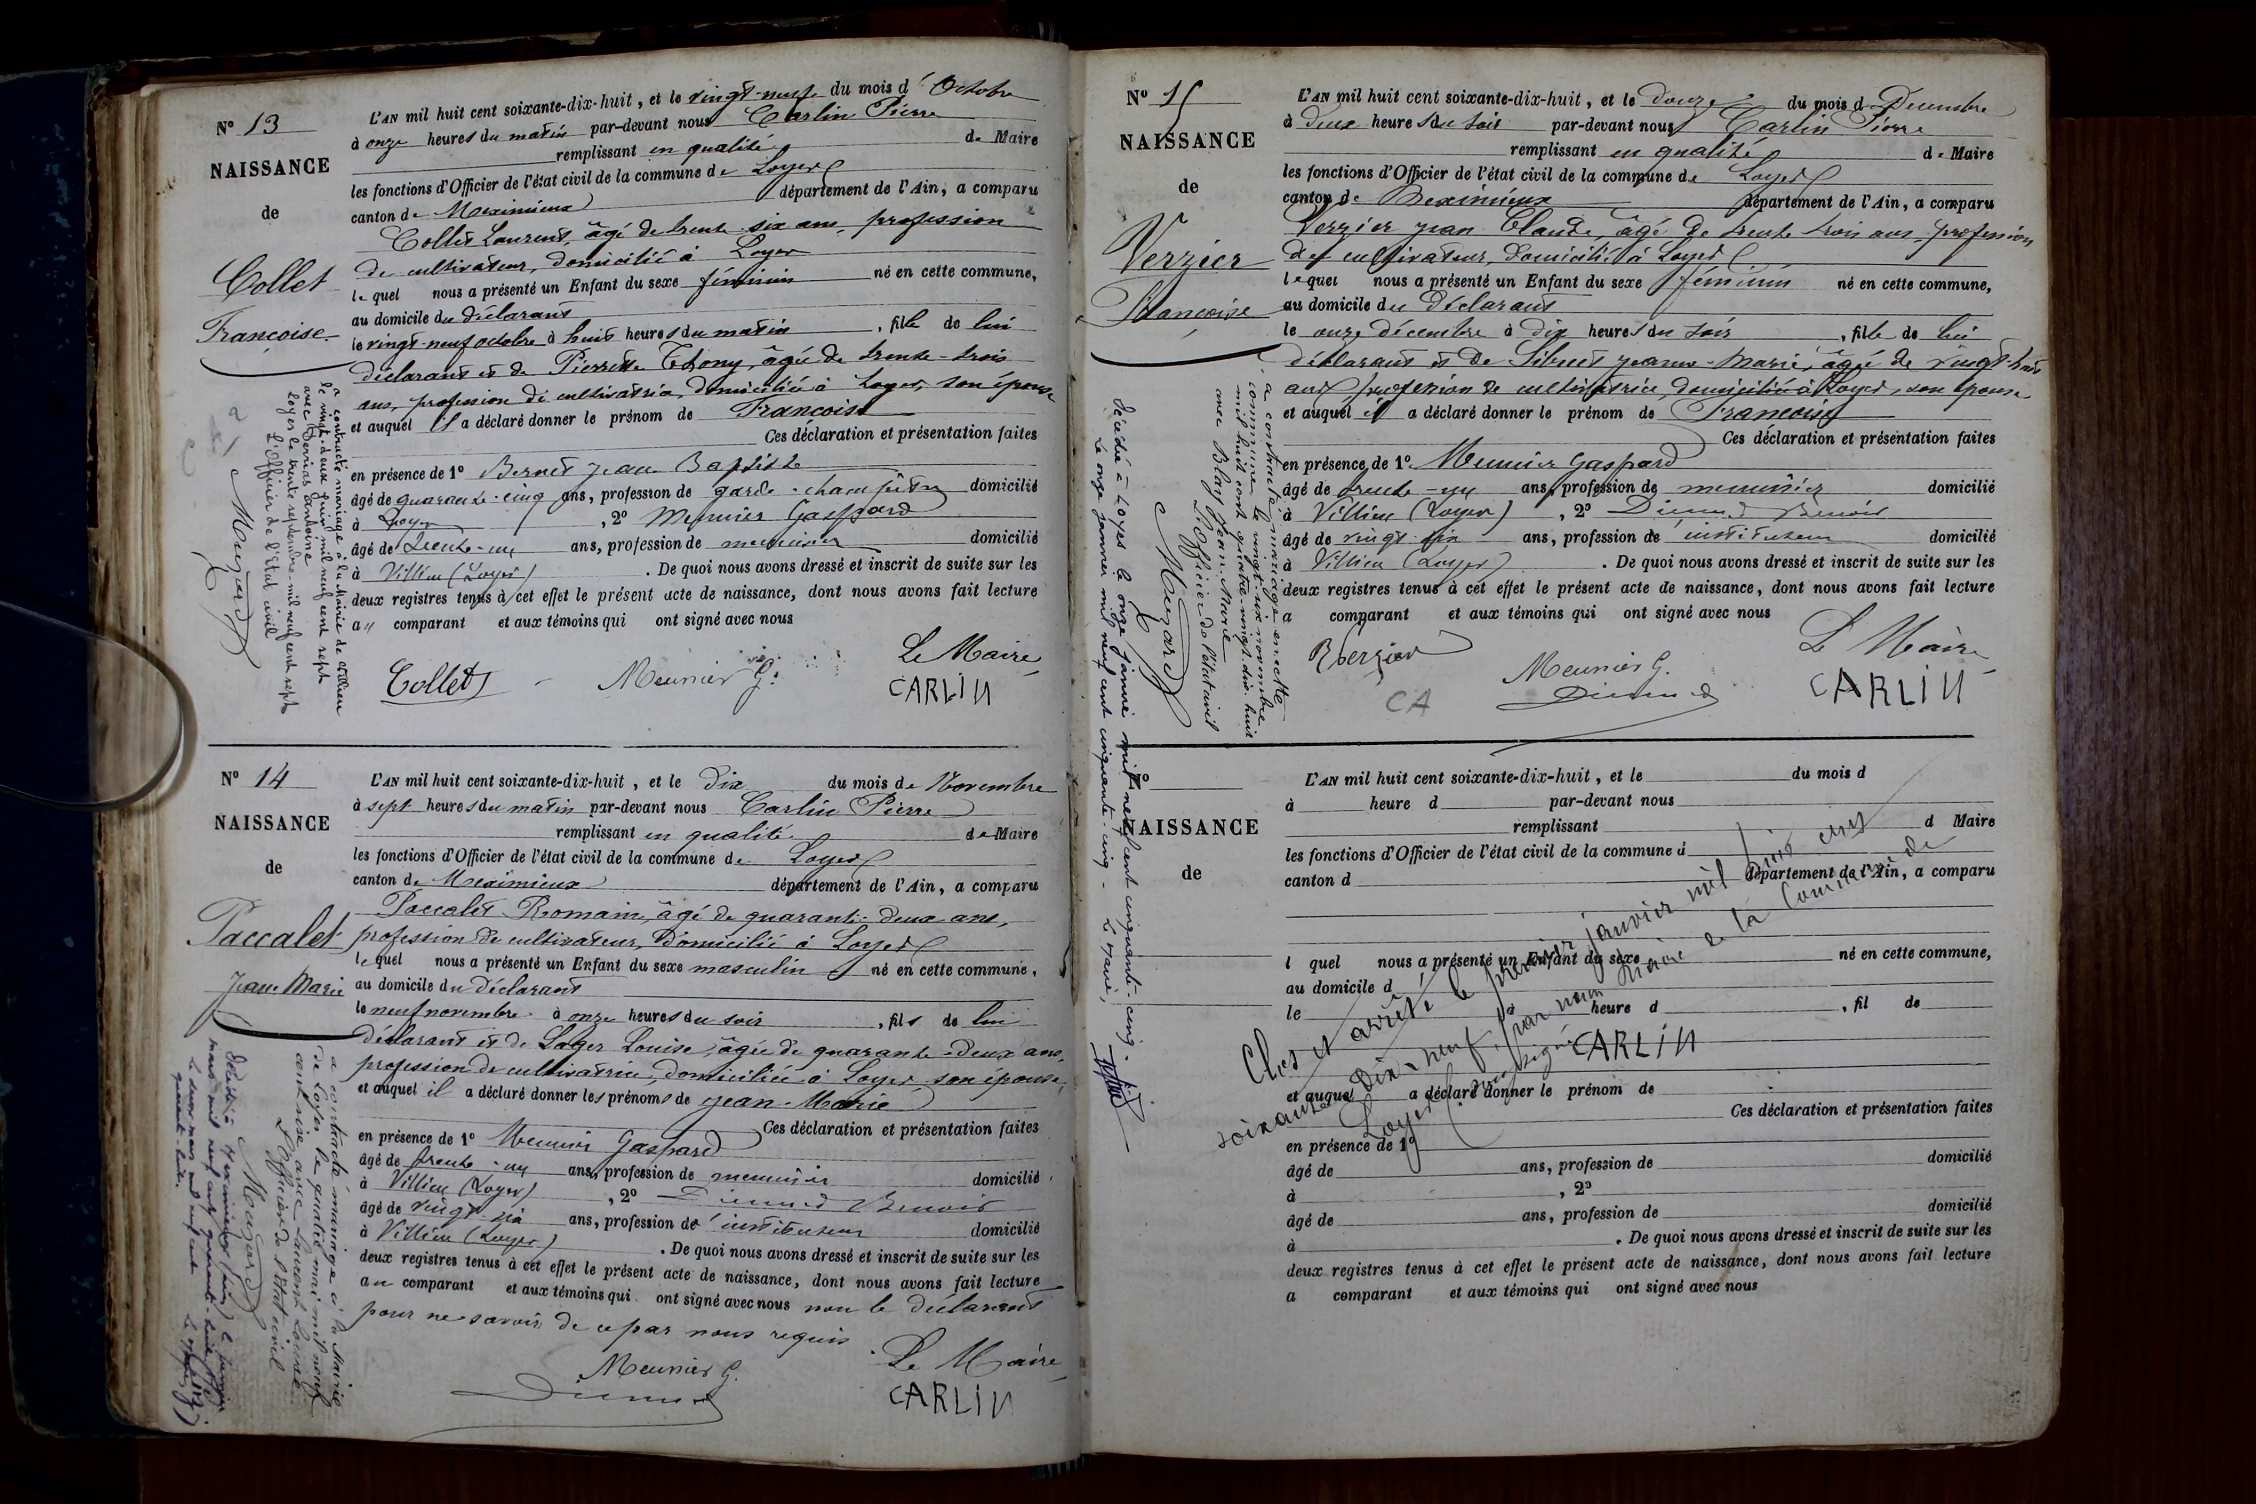 N° 13
NAISSANCE
de
Collet
Françoise.
L'AN mil huit cent soixante-dix-huit, et le vingt-neuf du mois d'Octobre
à onze heures du matin par-devant nous Carlin Pierre
remplissant en qualité de Maire
les fonctions d'Officier de l'état civil de la commune de Loyes
canton de Meximieux département de l'Ain, a comparu
Collet Laurent, âgé de trente-six ans, profession
de cultivateur, domicilié à Loyes
lequel nous a présenté un Enfant du sexe féminin né en cette commune,
au domicile du déclarant
le vingt-neuf octobre à huit heures du matin, fille de lui
déclarant et de Pierrette Thony, âgée de trente-trois
ans, profession de cultivatrice, domiciliée à Loyes, son épouse
et auquel il a déclaré donner le prénom de Françoise
Ces déclaration et présentation faites
en présence de 1° Bernet Jean Baptiste
âgé de quarante-cinq ans, profession de garde-champêtre domicilié
à Loyes, 2° Meunier Gaspard
âgé de trente-un ans, profession de menuisier domicilié
à Villieu (Loyes). De quoi nous avons dressé et inscrit de suite sur les
deux registres tenus à cet effet le présent acte de naissance, dont nous avons fait lecture
au comparant et aux témoins qui ont signé avec nous
Collet
Meunier G.
Le Maire
CARLIN
a contracté mariage à la Mairie de Villieu
le vingt-deux juin mil neuf cent sept
avec Antoine
Loyes le trente septembre mil neuf cent sept
L'officier de l'état civil
N° 14
NAISSANCE
de
Paccalet
Jean-Marie
L'AN mil huit cent soixante-dix-huit, et le dix du mois de Novembre
à sept heures du matin par-devant nous Carlin Pierre
remplissant en qualité de Maire
les fonctions d'Officier de l'état civil de la commune de Loyes
canton de Meximieux département de l'Ain, a comparu
Paccalet Romain, âgé de quarante-deux ans,
profession de cultivateur, domicilié à Loyes
lequel nous a présenté un Enfant du sexe masculin né en cette commune,
au domicile du déclarant
le neuf novembre à onze heures du soir, fils de lui
déclarant et de Sager Louise, âgée de quarante-deux ans,
profession de cultivatrice, domiciliée à Loyes, son épouse,
et auquel il a déclaré donner les prénoms de Jean-Marie
Ces déclaration et présentation faites
en présence de 1° Meunier Gaspard
âgé de trente-un ans, profession de menuisier domicilié
à Villieu (Loyes), 2° Benoit
âgé de vingt-six ans, profession de instituteur domicilié
à Villieu (Loyes). De quoi nous avons dressé et inscrit de suite sur les
deux registres tenus à cet effet le présent acte de naissance, dont nous avons fait lecture
au comparant et aux témoins qui ont signé avec nous non le déclarant
pour ne savoir de ce par nous requis.
Meunier G.
Le Maire
CARLIN
a contracté mariage à la Mairie
de Loyes le quatre mai mil neuf
cent avec
L'officier de l'état civil
N° 15
NAISSANCE
de
Verzier
Françoise
L'AN mil huit cent soixante-dix-huit, et le douze du mois de Décembre
à deux heures du soir par-devant nous Carlin Pierre
remplissant en qualité de Maire
les fonctions d'Officier de l'état civil de la commune de Loyes
canton de Meximieux département de l'Ain, a comparu
Verzier Jean Claude, âgé de trente trois ans, profession
de cultivateur, domicilié à Loyes
lequel nous a présenté un Enfant du sexe féminin né en cette commune,
au domicile du déclarant
le onze décembre à dix heures du soir, fille de lui
déclarant et de Jeanne-Marie, âgée de vingt-huit
ans, profession de cultivatrice, domiciliée à Loyes, son épouse
et auquel il a déclaré donner le prénom de Françoise
Ces déclaration et présentation faites
en présence de 1° Meunier Gaspard
âgé de trente-un ans, profession de menuisier domicilié
à Villieu (Loyes), 2° Benoit
âgé de vingt-six ans, profession de instituteur domicilié
à Villieu (Loyes). De quoi nous avons dressé et inscrit de suite sur les
deux registres tenus à cet effet le présent acte de naissance, dont nous avons fait lecture
a comparant et aux témoins qui ont signé avec nous
Verzier
CA
Meunier G.
Le Maire
CARLIN
a contracté mariage en cette
commune le vingt-six novembre
mil huit cent quatre-vingt-dix-huit
avec Blay Jean-Marie
L'Officier de l'état civil
Décédée à Loyes le onze janvier mil neuf cent cinquante-cinq.
Le onze janvier mil neuf cent cinquante-cinq - Le Maire,
N°
NAISSANCE
de
L'AN mil huit cent soixante-dix-huit, et le du mois d
à heure d par-devant nous
remplissant d Maire
les fonctions d'Officier de l'état civil de la commune d
canton d département de l'Ain, a comparu
l quel nous a présenté un Enfant du sexe né en cette commune,
au domicile d
le heure d, fil de
et auquel a déclaré donner le prénom de
Ces déclaration et présentation faites
en présence de 1°
âgé de ans, profession de domicilié
à, 2°
âgé de ans, profession de domicilié
à. De quoi nous avons dressé et inscrit de suite sur les
deux registres tenus à cet effet le présent acte de naissance, dont nous avons fait lecture
a comparant et aux témoins qui ont signé avec nous
Clos et arrêté le premier janvier mil huit cent
soixante dix-neuf, par nous Maire de la Commune de
Loyes soussigné
CARLIN